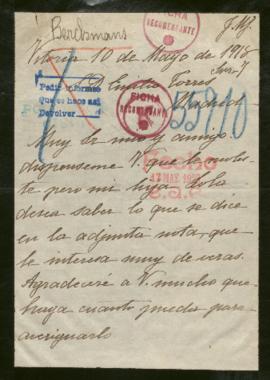 Berckmans
J.M.J.
FICHA
DOCUMENTANTE
Vitoria 10 de Mayo de 1918
S D Emilio Torres
Madrid
Pedir informes
que se hace así
Devolver
FICHA
DOCUMENTANTE
55910
Muy Sr mío y amigo
dispénseme V. que le moles-
te pero mi hija
desea saber lo que se dice
en la adjunta nota, que
le interesa muy de veras.
Agradeceré a V. mucho que
haya cuanto pueda para
averiguarlo